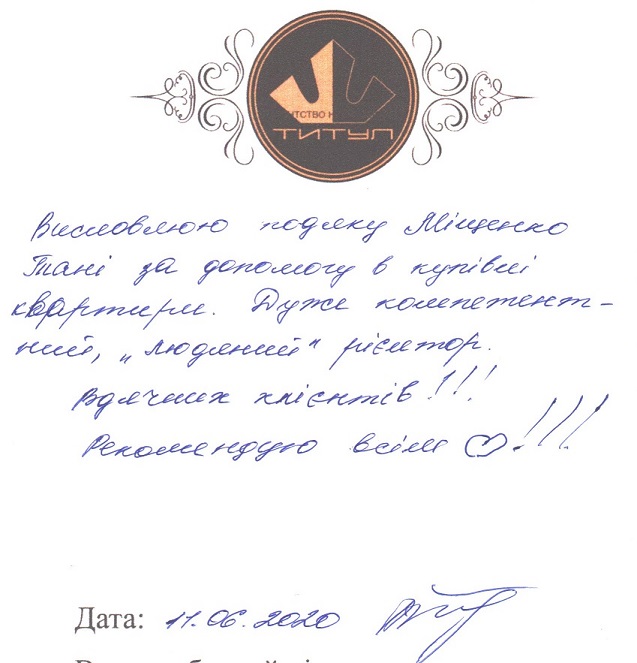 ТСТВО Н
ТИТУЛ
Висловлюю подяку Міщенко
Тані за допомогу в купівлі
квартири. Дуже компетент-
ний, „людяний“ рієлтор.
Вдячних клієнтів!!!
Рекомендую всім ♡!!!
Дата: 11.06.2020